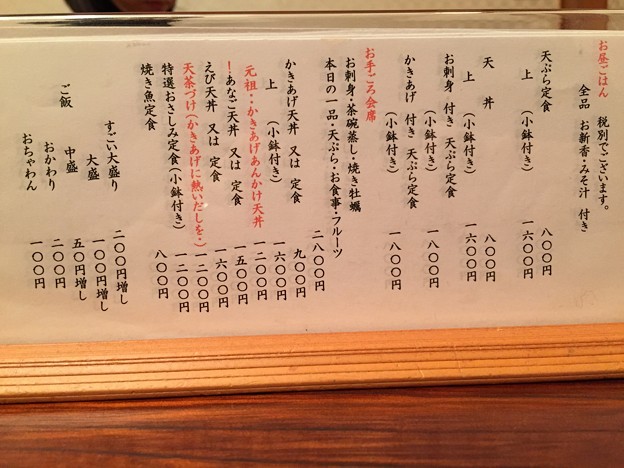 お昼ごはん 税別でございます。
全品 お新香・みそ汁 付き
天ぷら定食 八〇〇円
上 (小鉢付き) 一六〇〇円
天 丼 八〇〇円
上 (小鉢付き) 一六〇〇円
お刺身 付き 天ぷら定食 一八〇〇円
(小鉢付き)
かきあげ 付き 天ぷら定食 一八〇〇円
(小鉢付き)
お手ごろ会席
お刺身・茶碗蒸し・焼き牡蠣
本日の一品・天ぷら・お食事・フルーツ 二八〇〇円
かきあげ天丼 又は 定食 九〇〇円
上 (小鉢付き) 一六〇〇円
元祖・かきあげあんかけ天丼 一二〇〇円
！あなご天丼 又は 定食 一五〇〇円
えび天丼 又は 定食 一六〇〇円
天茶づけ(かきあげに熱いだしを・) 一二〇〇円
特選おさしみ定食(小鉢付き) 一二〇〇円
焼き魚定食 八〇〇円
すごい大盛り 二〇〇円増し
大盛 一〇〇円増し
ご飯 中盛 五〇円増し
おかわり 二〇〇円
おちゃわん 一〇〇円